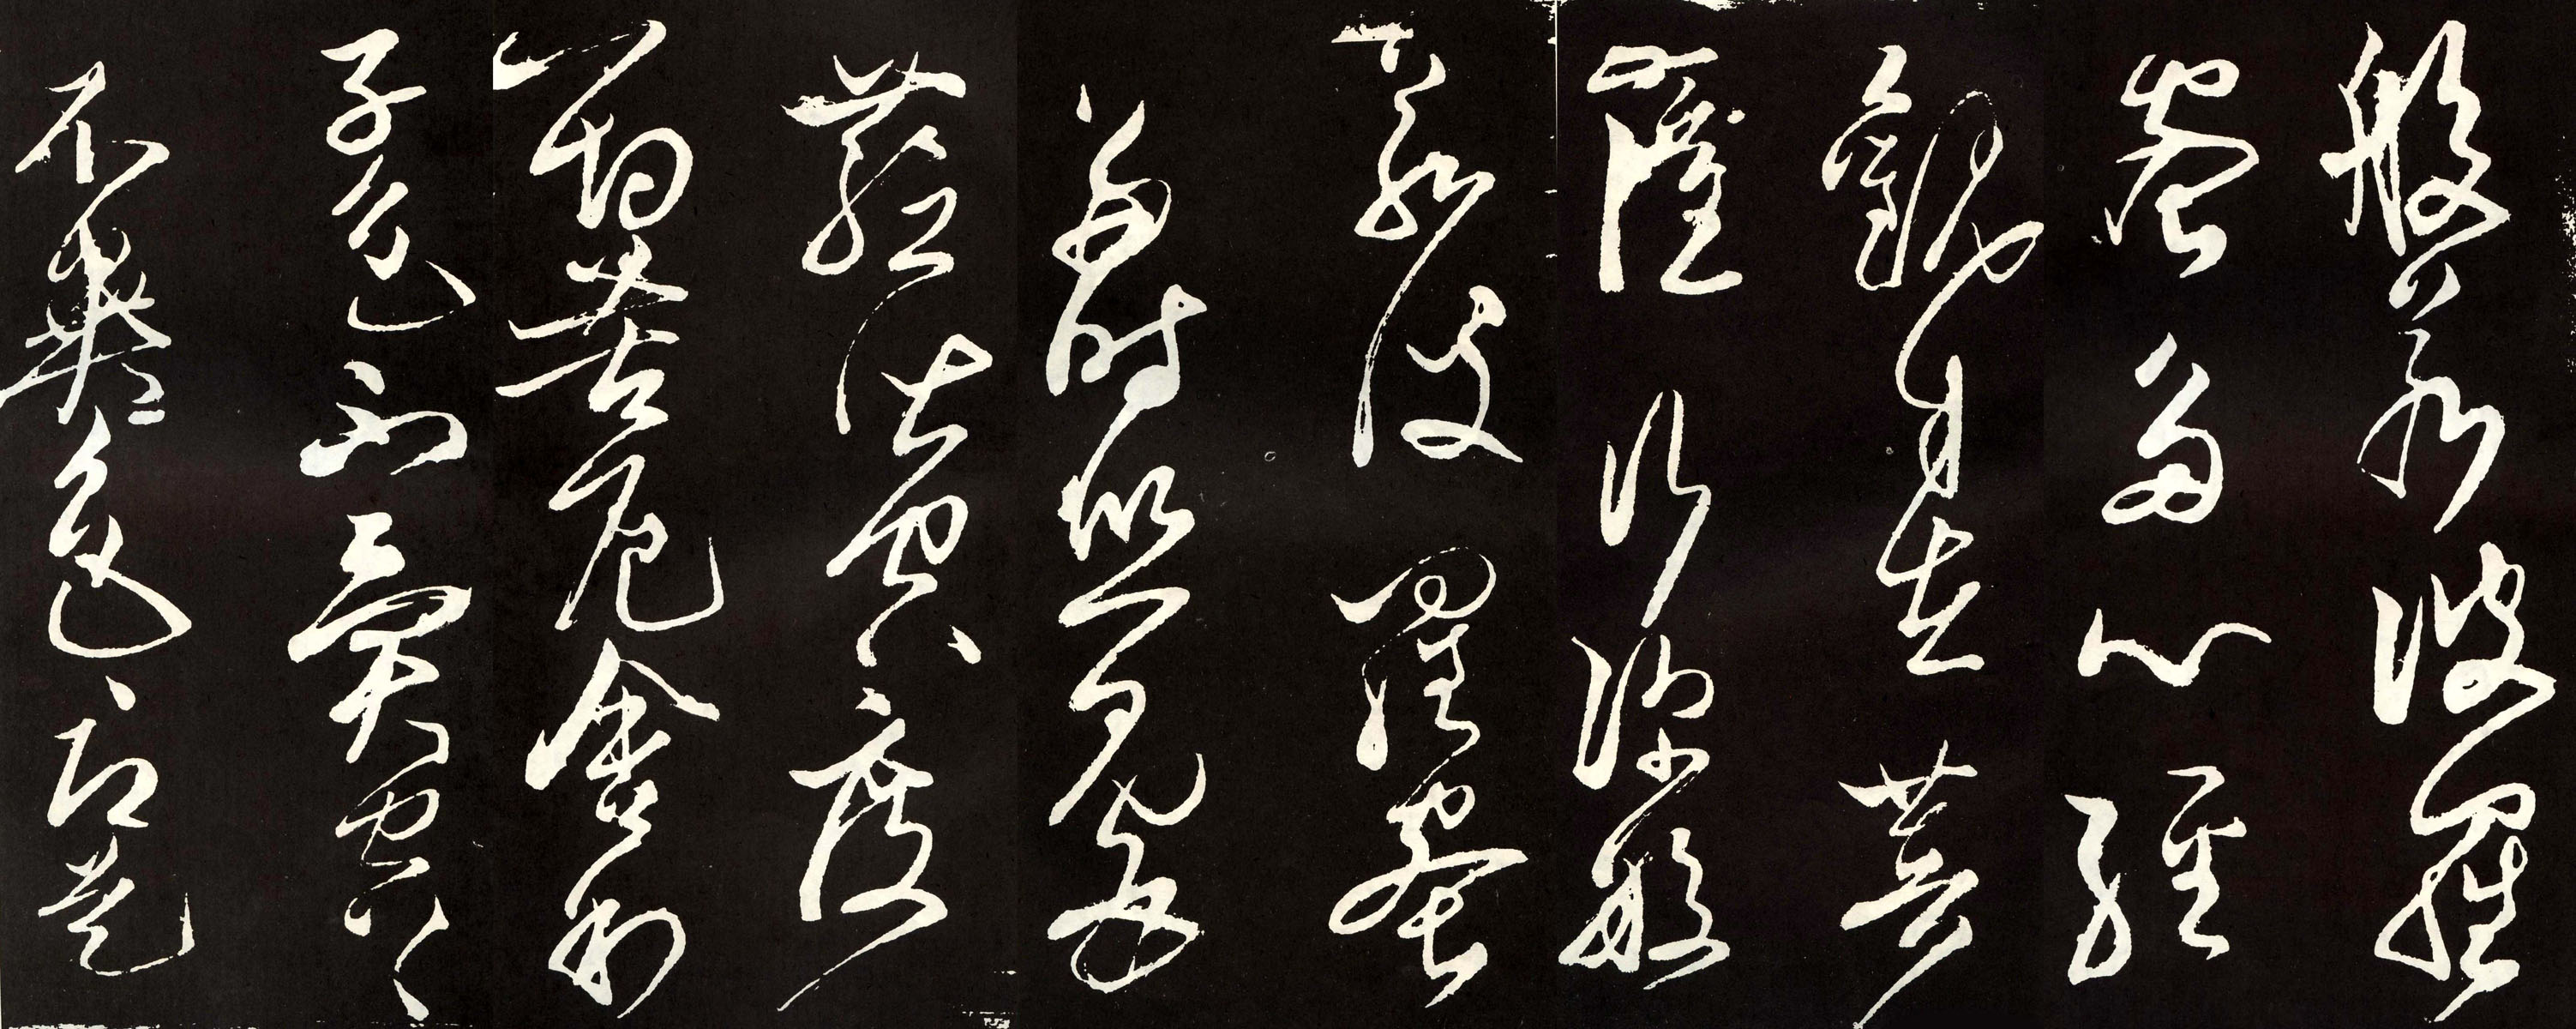 般若波羅
蜜多心經
觀自在菩
薩行深般
若波羅蜜
多時照見五
蘊皆空度
一切苦厄舍利
子色不異空〻
不異色即是